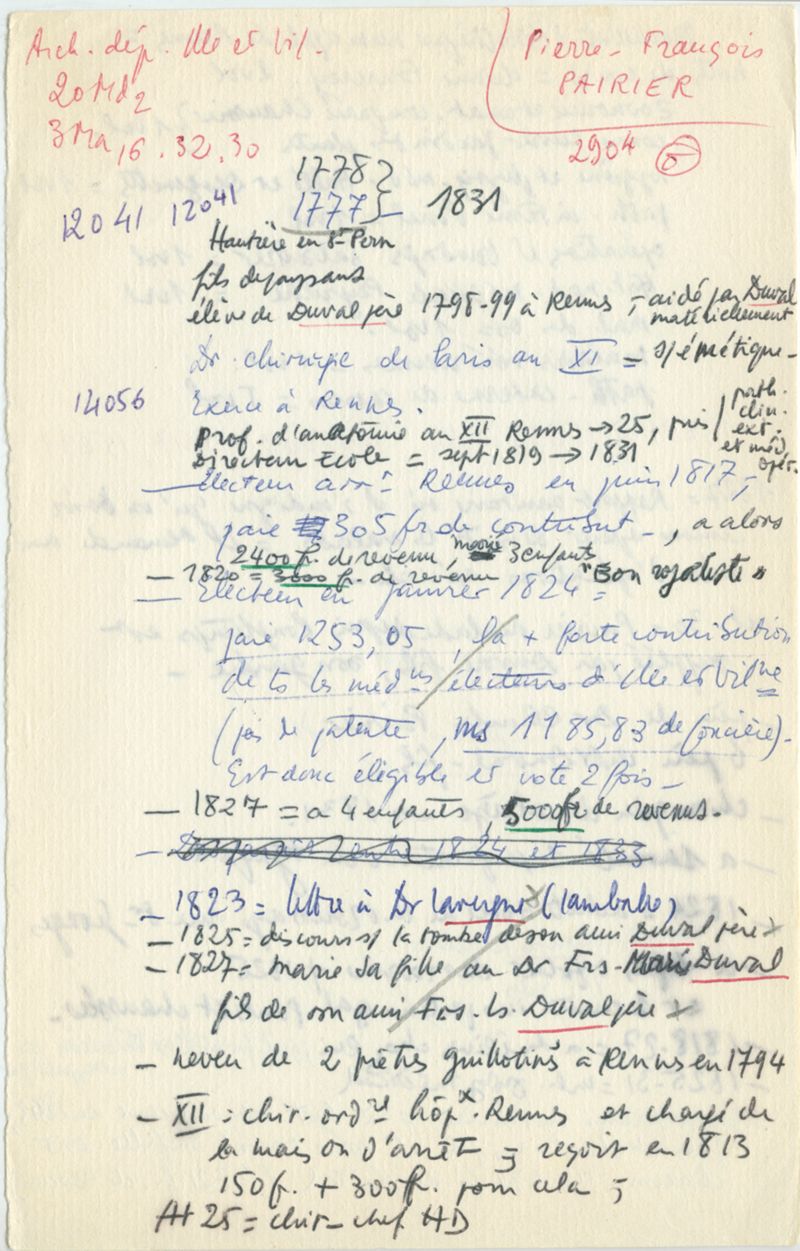 Arch. dép. Ille et Vil.
20 Md2
3 Ma 16. 32. 30
Pierre-François
PAIRIER
2904 θ
1778 }
12041 12041 1777 } - 1831
Hautière en St Pern
fils de paysans
élève de Duval père 1798-99 à Rennes ; - aidé par Duval
matériellement
Dr. chirurgie de Paris an XI = s/ émétique -
14056 Exerce à Rennes.
Prof. d'anatomie an XII Rennes → 25, puis / path.
clin.
ext.
et méd.
opér.
Directeur Ecole = sept 1819 → 1831
— électeur arrt Rennes en juin 1817 ;
paie 305 fr de contribut -, a alors
2400 fr. de revenu, 3 enfants
— 1820 = 3000 fr. de revenu "Bon royaliste"
— Electeur en janvier 1824 =
paie 1253,05, la + forte contribution
de ts les médns électeurs d'Ille et Vilne
(pas de patente, ms 1185,83 de foncière) -
Est donc éligible et vote 2 fois -
— 1827 = a 4 enfants, 5000 fr de revenus.
- entre 1824 et 1833
- 1823 = lettre à Dr Lavergne (Lamballe)
- 1825 = discours s/ la tombe de son ami Duval père
- 1827 = marie sa fille au Dr Frs- Marie Duval
fils de son ami Frs. Duval père
- neveu de 2 prêtres guillotinés à Rennes en 1794
- XII = chir. ordre hôpx. Rennes et chargé de
la maison d'arrêt = reçoit en 1813
150 f. + 300 fr. pour cela ;
At 25 = chir- chef HD